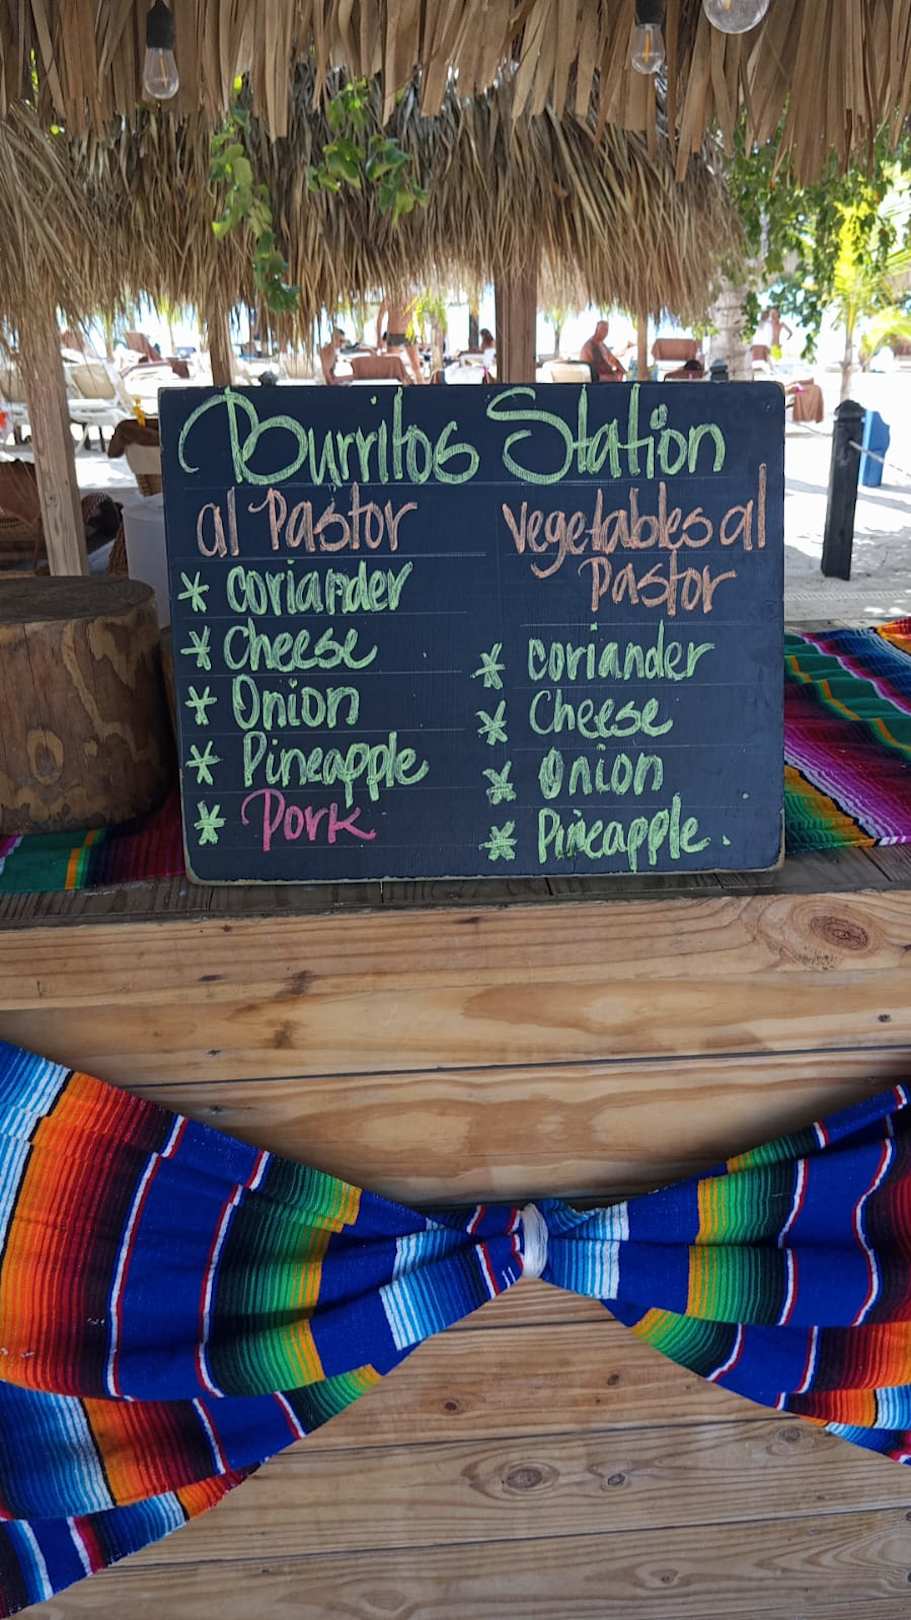 Burritos Station
al Pastor
* coriander
* Cheese
* Onion
* Pineapple
* Pork
vegetables al
Pastor
* coriander
* Cheese
* Onion
* Pineapple.